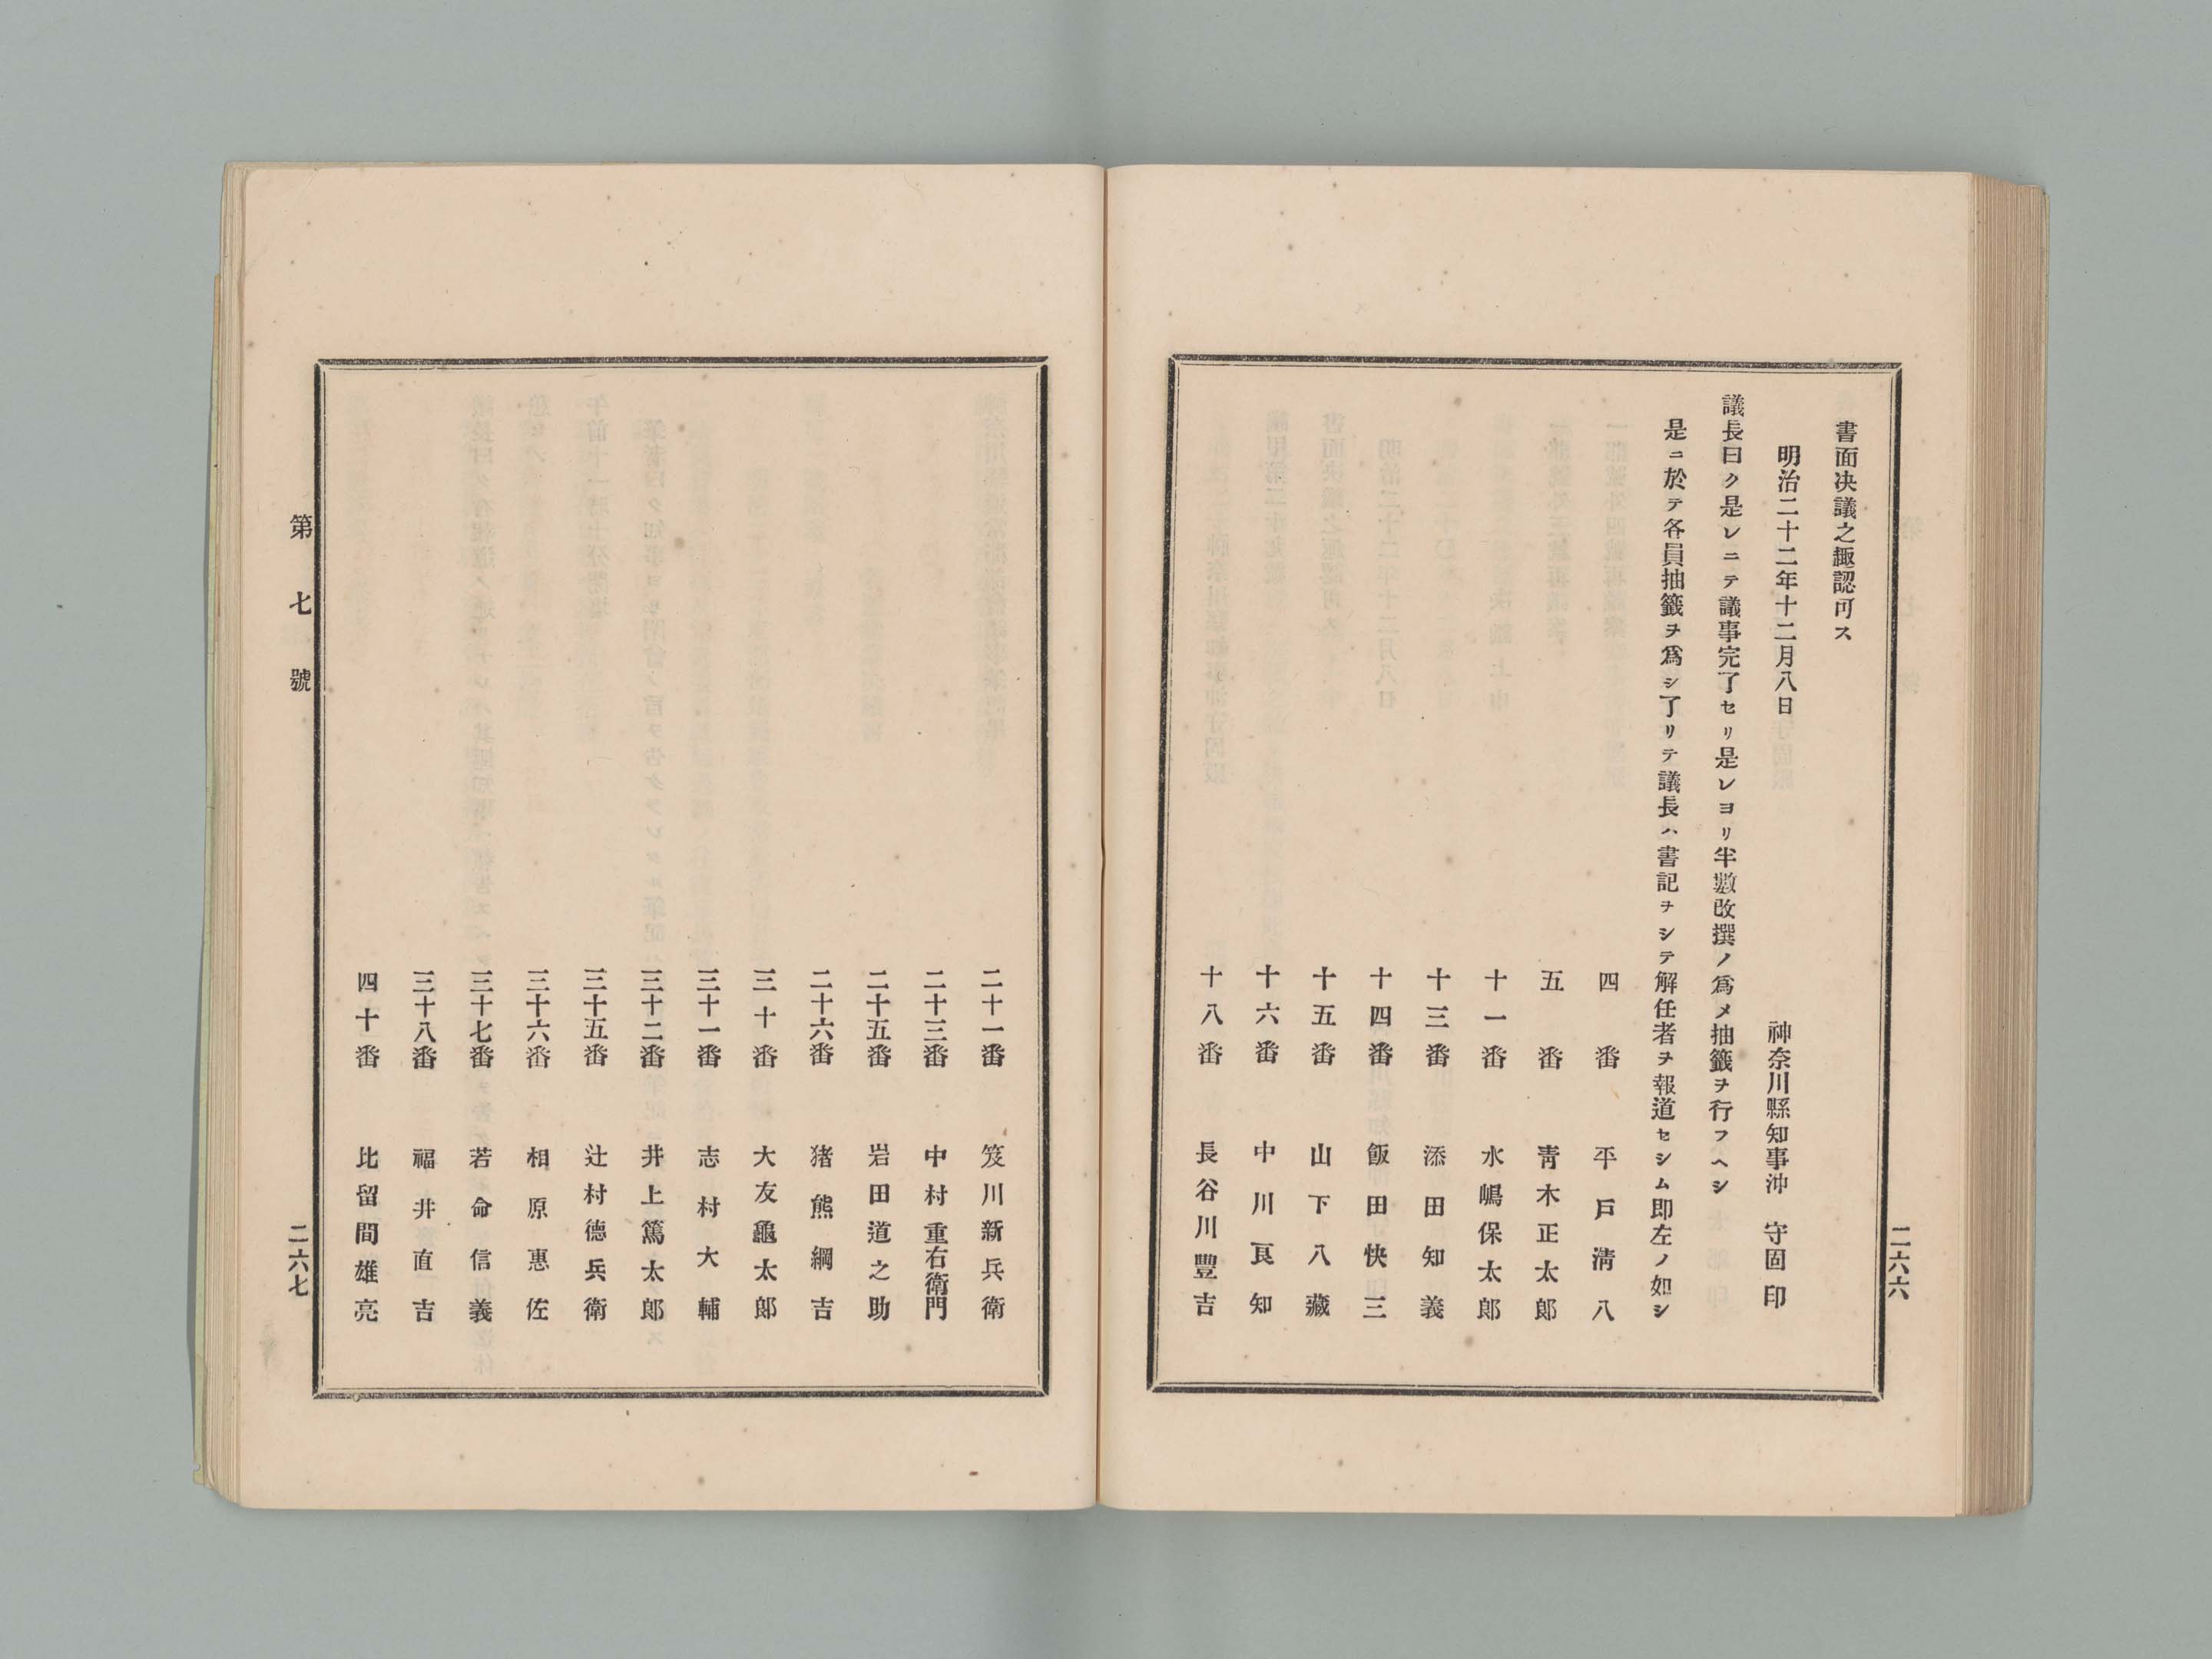 書面決議之趣認可ス
明治二十二年十二月八日
神奈川縣知事沖 守固 印
議長曰ク是レニテ議事完了セリ是レヨリ半數改撰ノ爲メ抽籤ヲ行フヘシ
是ニ於テ各員抽籤ヲ爲シ了リテ議長ハ書記ヲシテ解任者ヲ報道セシム即左ノ如シ
四番 平戸淸八
五番 靑木正太郎
十一番 水嶋保太郎
十三番 添田知義
十四番 飯田快三
十五番 山下八藏
十六番 中川良知
十八番 長谷川豐吉
二六六
二十一番 笈川新兵衛
二十三番 中村重右衛門
二十五番 岩田道之助
二十六番 猪熊綱吉
三十番 大友龜太郎
三十一番 志村大輔
三十二番 井上篤太郎
三十五番 辻村德兵衛
三十六番 相原惠佐
三十七番 若命信義
三十八番 福井直吉
四十番 比留間雄亮
第七號
二六七